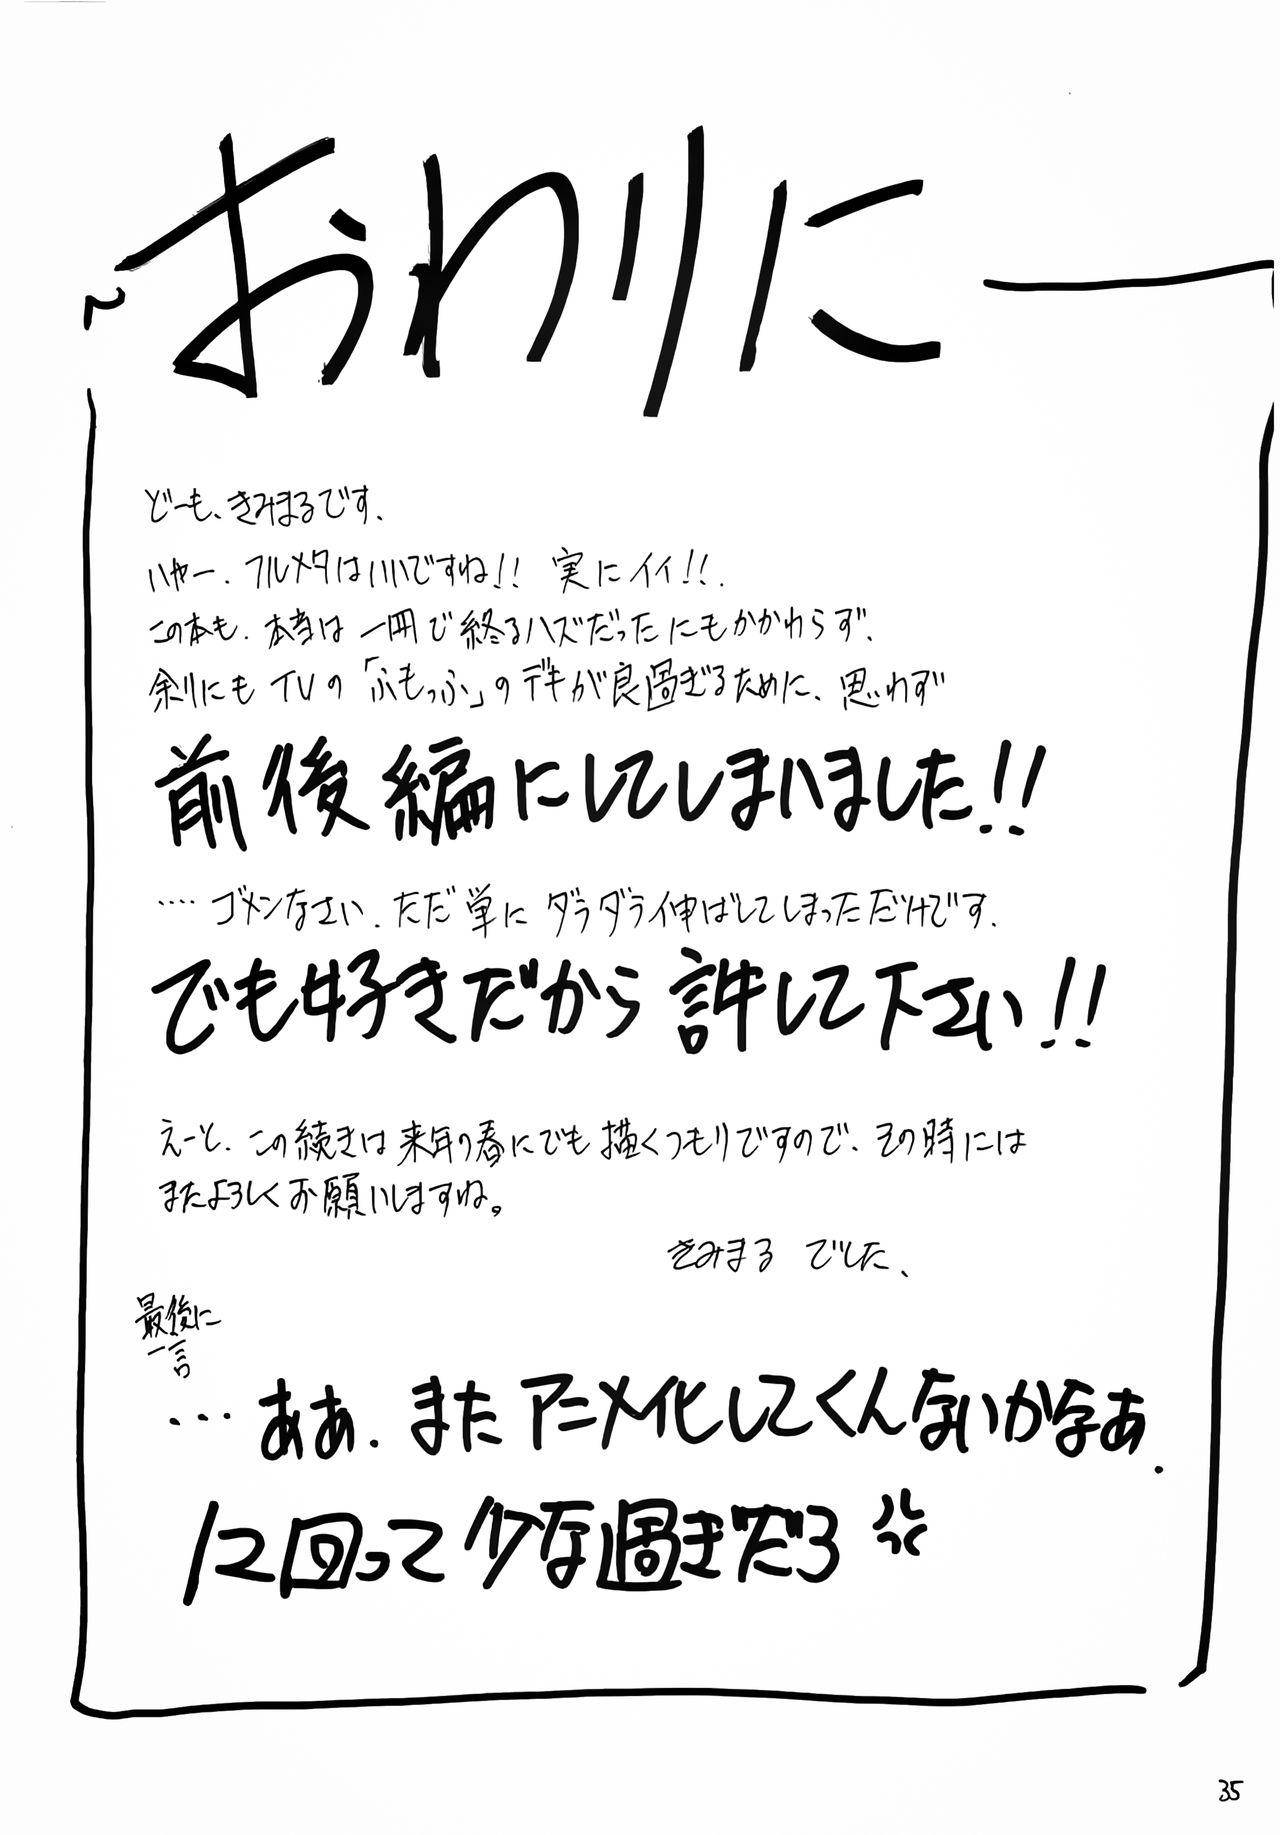 おわりに
どーも、きみまるです、
いやー、フルメタはいいですね!! 実にイイ!!、
この本も、本当は一冊で終るハズだったにもかかわらず、
余りにもTVの「ふもっふ」のデキが良過ぎるために、思わず
前後編にしてしまいました!!
‥‥ゴメンなさい、ただ単にダラダラ伸ばしてしまっただけです、
でも好きだから許して下さい!!
えーと、この続きは来年の春にでも描くつもりですので、その時には
またよろしくお願いしますね。
きみまる でした、
最後に
一言
…ああ、またアニメ化してくんないかなぁ、
12回って少な過ぎだろ
35